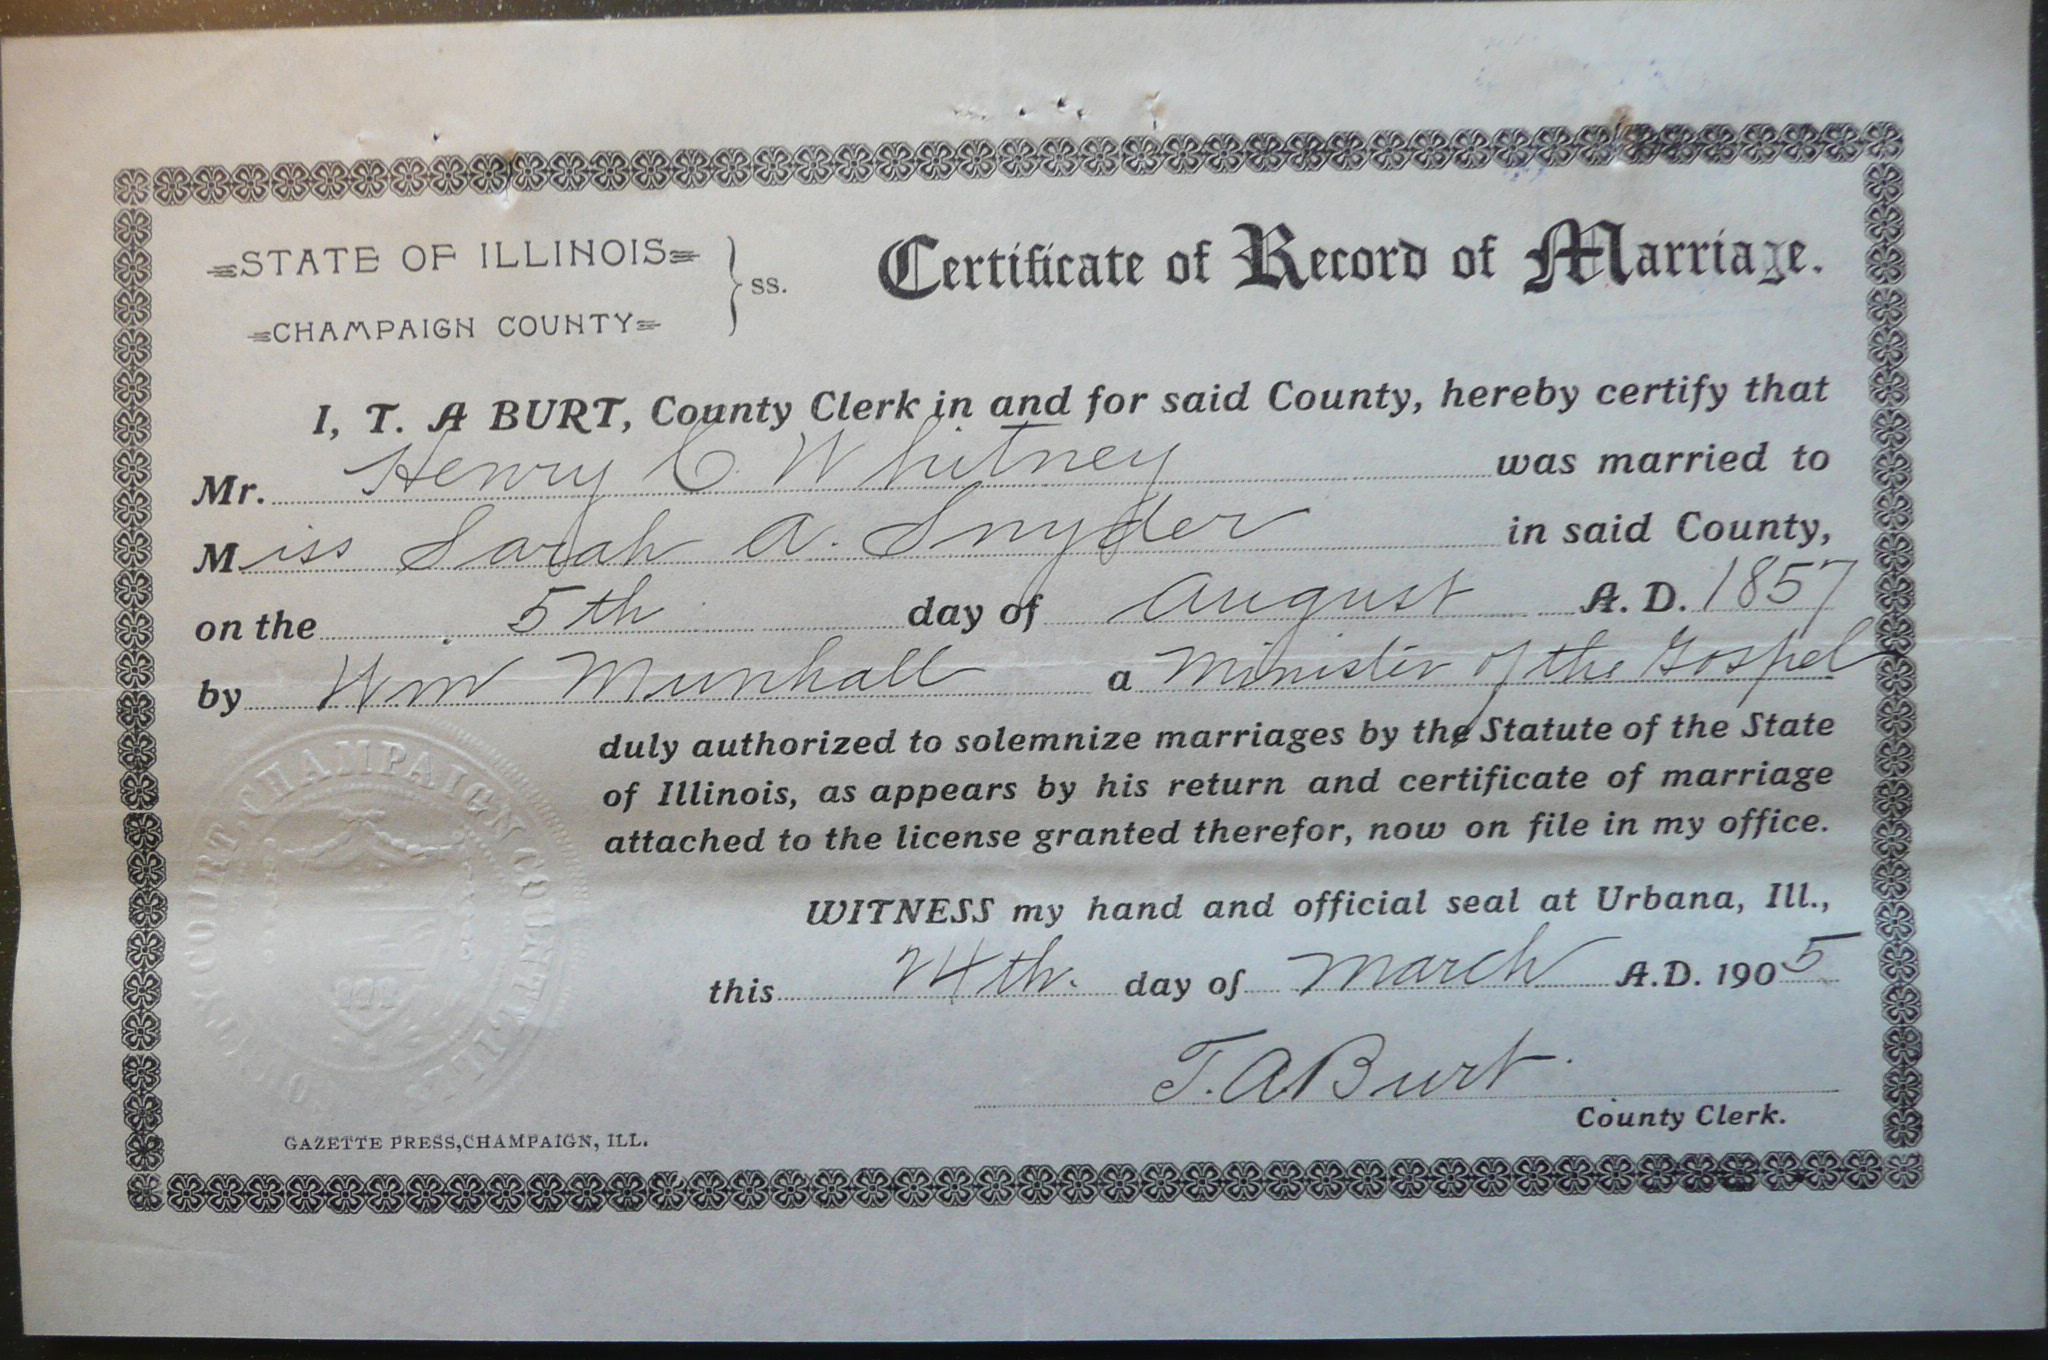 STATE OF ILLINOIS } ss.
CHAMPAIGN COUNTY
Certificate of Record of Marriage.
I, T. A BURT, County Clerk in and for said County, hereby certify that
Mr. Henry C. Whitney was married to
Miss Sarah A. Snyder in said County,
on the 5th day of August A. D. 1857
by Wm Munhall a Minister of the Gospel
duly authorized to solemnize marriages by the Statute of the State
of Illinois, as appears by his return and certificate of marriage
attached to the license granted therefor, now on file in my office.
WITNESS my hand and official seal at Urbana, Ill.,
this 24th. day of March A.D. 1905
T. A. Burt.
County Clerk.
COURT, CHAMPAIGN COUNTY
GAZETTE PRESS, CHAMPAIGN, ILL.